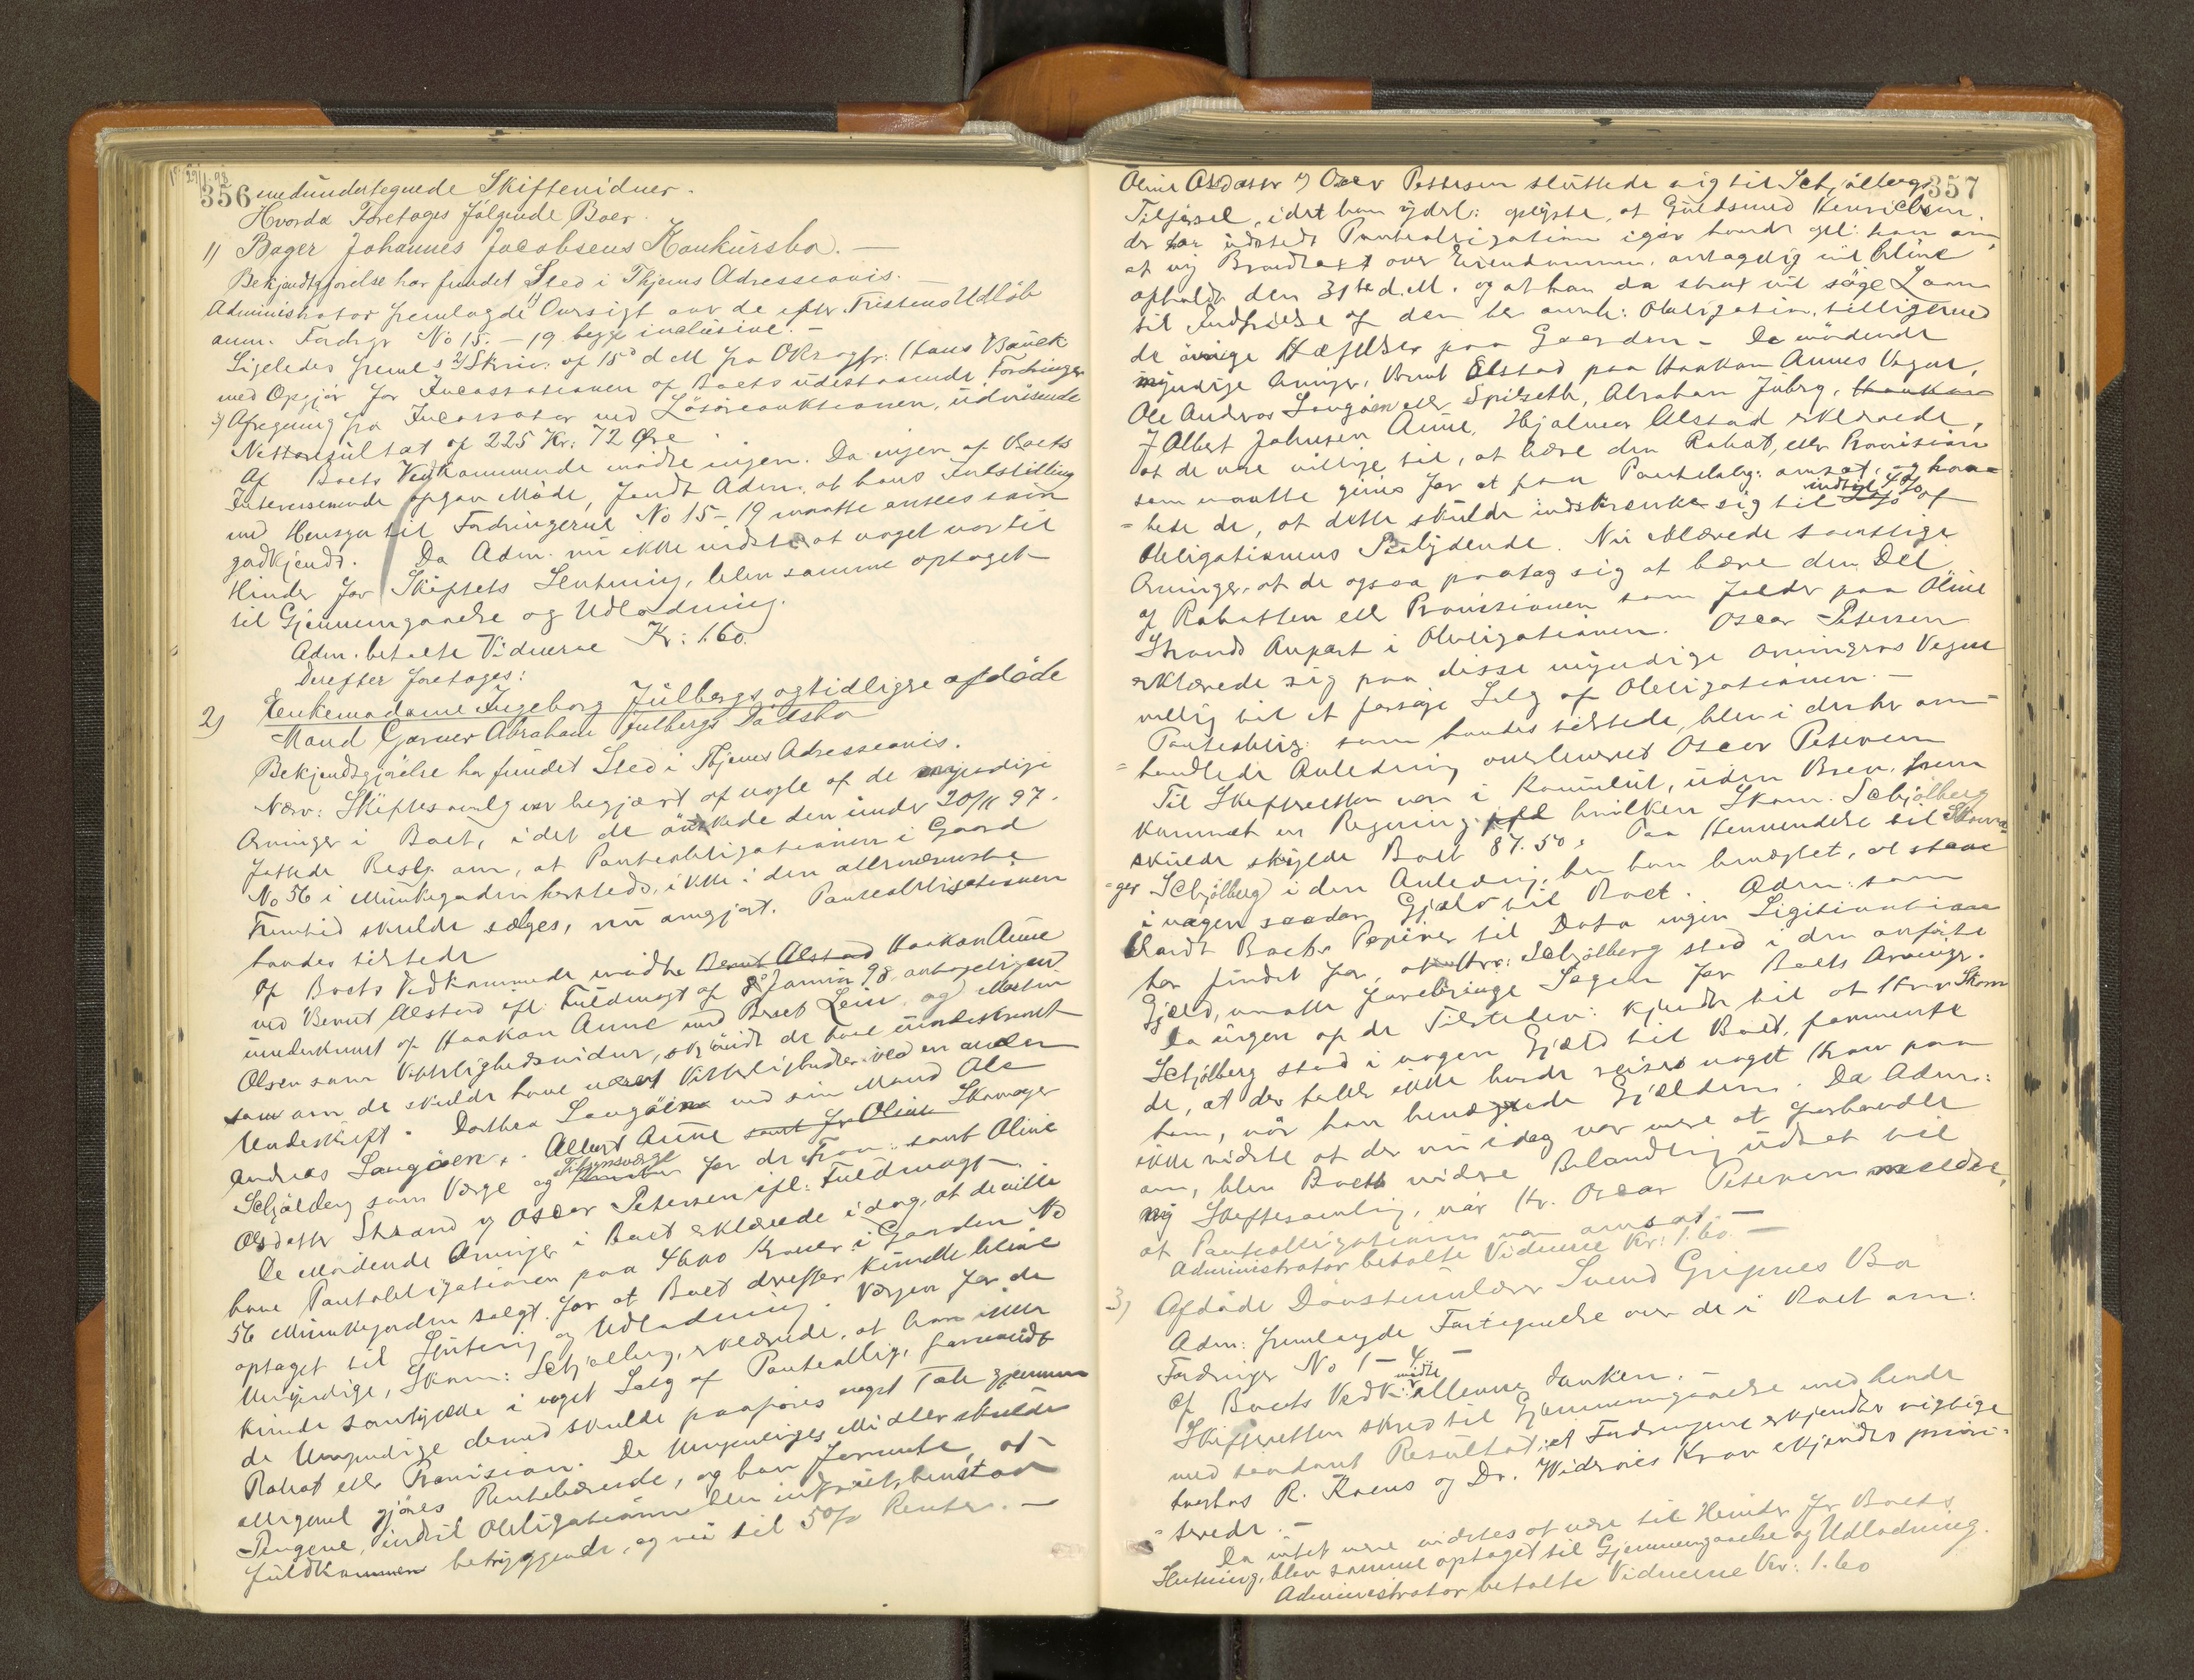 29/1.98
356 medundertegnede Skiftevidner.
Hvorda Foretoges følgende Boer.
1) Bager Johannes Jacobsens Konkursbo. —
Bekjendtgjörelse har fundet Sted i Thjems Adresseavis.
Administrator fremlagde 1) Oversigt over de efter Fristens Udløb
anm. Fordrgr No 15. – 19 begge inclusive. –
Ligeledes freml s 2) Skriv. af 15d d M fra OR Hans Bauck
med Opgjör for Incassationen af Boets udestaaende Fordringer
3) Afregning fra Incassator ved Lösöreauktionen, udvisende
Nettoresultat af 225 Kr: 72 Øre
Af Boets Vedkommende mødte ingen. Da ingen af Boets
Interesserede opgav Møde, fandt Adm. at hans Indstilling
med Hensyn til Fordringerne No 15–19 maatte ansees som
godkjendt. Da Adm. nu ikke vidste at noget var til
Hinder for Skiftets Slutning, blev samme optaget
til Gjennemgaaelse og Udlodning.
Adm. betalte Vidnerne Kr: 1.60
Derefter foretoges:
2) Enkemadame Ingeborg Julbergs og tidligere afdöde
Mand Garver Abraham Julbergs Dödsbo
Bekjendtgjörelse har fundet Sted i Thjems Adresseavis.
Nærv: Skiftesamlg var begjært af nogle af de myndige
Arvinger i Boet, idet de önskede den under 20/11 97.
fattede Beslg. om, at Pantobligationen i Gaard
No 56 i Munkegaden hersteds, ikke i den allernærmeste
Fremtid skulde sælges, nu omgjort. Pantobligationen
havdes tilstede
Af Boets Vedkommende mødte Bernt Alstad Haakon Aune
ved Bernt Alstad ifl. Fuldmagt af 8d Januar 98. antagelig
underkrevet af Haakon Aune med Bernt Lein og Martin
Olsen som Vitterlighedsvidner, skjöndt de have underskrevet
som om de skulde have været Vitterligheder ved en anden
Underskrift. Dorthea Langöien ved sin Mand Ole
Andreas Langöien, Albert Aune samt for Oline Skomager
Schjölberg som Værge og Tilsynsværge for de Fra: samt Oline
Olsdatter Strand og Oscar Petersen ifl: Fuldmagt
De mödende Arvinger i Boet erklærede idag, at de ville
have Pantobligationen paa 4600 Kroner i Gaarden No
56 Munkegaden solgt for at Boet derefter kunde blive
optaget til Slutning og Udlodning. Værgen for de
Umyndige, Skom: Schjölberg, erklærede, at han ikke
kunde samtykke i noget Salg af Pantoblig, forsaavidt
de Umyndige derved skulde paaføres noget Tab gjennem
Rabat eller Provision. De Umyndiges Midler skulde
alligevel gjöres Rentebærende, og han formente, at
Pengene, indtil Obligationen blev indfriet, henstod
fuldkommen betryggende, og nu til 5% Renter. —
357
Oline Olsdatter og Oscar Pettersen sluttede sig til Schjölbergs
Tilførsel, idet han yderl: oplyste, at Guldsmed Henrichsen.
der har udstedt Pantobligation igår havde opl: han om,
at ny Brandtaxt over Eiendommen, antagelig vil blive
afholdt den 31te d. M. og at han da strax vil söge Laan
til Indfrielse af den her omh: Obligation, tilligemed
de øvrige Hæftelser paa Gaarden – De mödende
myndige Arvinger, Bernt Alstad paa Haakon Aunes Vegne,
Ole Andreas Langöien eller Spilseth, Abraham Juberg, Haakon
J Albert Johnsen Aune, Hjalmar Alstad erklerede,
at de vare villige til, at bære den Rabat, eller Provision
som maatte gives for at faa Pantoblig: omsat, og haa=
=bede de, at dette skulde indskrænke sig til indtil 4% af
Obligationens Paalydende. Nu erklærede samtlige
Arvinger, at de ogsaa paatog sig at bære den Del
af Rabatten eller Provisionen som falder paa Oline
Strands Anpart i Obligationen. Oscar Petersen
erklærede sig paa disse myndige Arvingers Vegne
villig til at forsøge Salg af Obligationen. –
Pantoblig: som havdes tilstede, blev i denne om=
=handlede Anledning overleveret Oscar Petersen
Til Skifteretten var i Konvolut, uden Brev, frem
kommet en Regning, ifl hvilken Skom. Schjölberg
skulde skylde Boet 87.50. Paa Henvendelse til Skoma=
=ger Schjölberg i den Anledng, har han benægtet, at staae
i nogen saadan Gjæld til Boet. Adm: som
blandt Boets Papirer til Dato ingen Legitimation
har fundet for, at Hr: Schjölberg stod i den anførte
Gjæld, maatte forebringe Sagen for Boets Arvinger.
Da ingen af de Tilstedev: kjendte til at Hr. Skom
Schjölberg stod i nogen Gjæld til Boet, formente
de, at der heller ikke burde reises noget Krav paa
ham, når han benægtede Gjælden. Da Adm:
ikke vidste at der nu idag var mere at forhandle
om, blev Boets videre Behandling udsat til
ny Skiftesamling, når Hr. Oscar Petersen melder,
at Pantobligationen var omsat. —
Administrator betalte Vidnerne Kr: 1.60 —
3) Afdöde Dövstumlærer Svend Gripnes Bo
Adm: fremlagde Fortegnelse over de i Boet anm:
Fordringer No 1 – 4 –
Af Boets Vedk: mødte allene Enken. –
Skifteretten skred til Gjennemgaaelse med hende
med saadant Resultat, at Fordringerne erkjendtes rigtige
hvorhos R. Kaens og Dr. Widerøes Krav erkjendes priori-
terede. –
Da intet mere vidstes at være til Hinder for Boets
Slutning, blev samme optaget til Gjennemgaaelse og Udlodning.
Administrator betalte Vidnerne Kr: 1.60